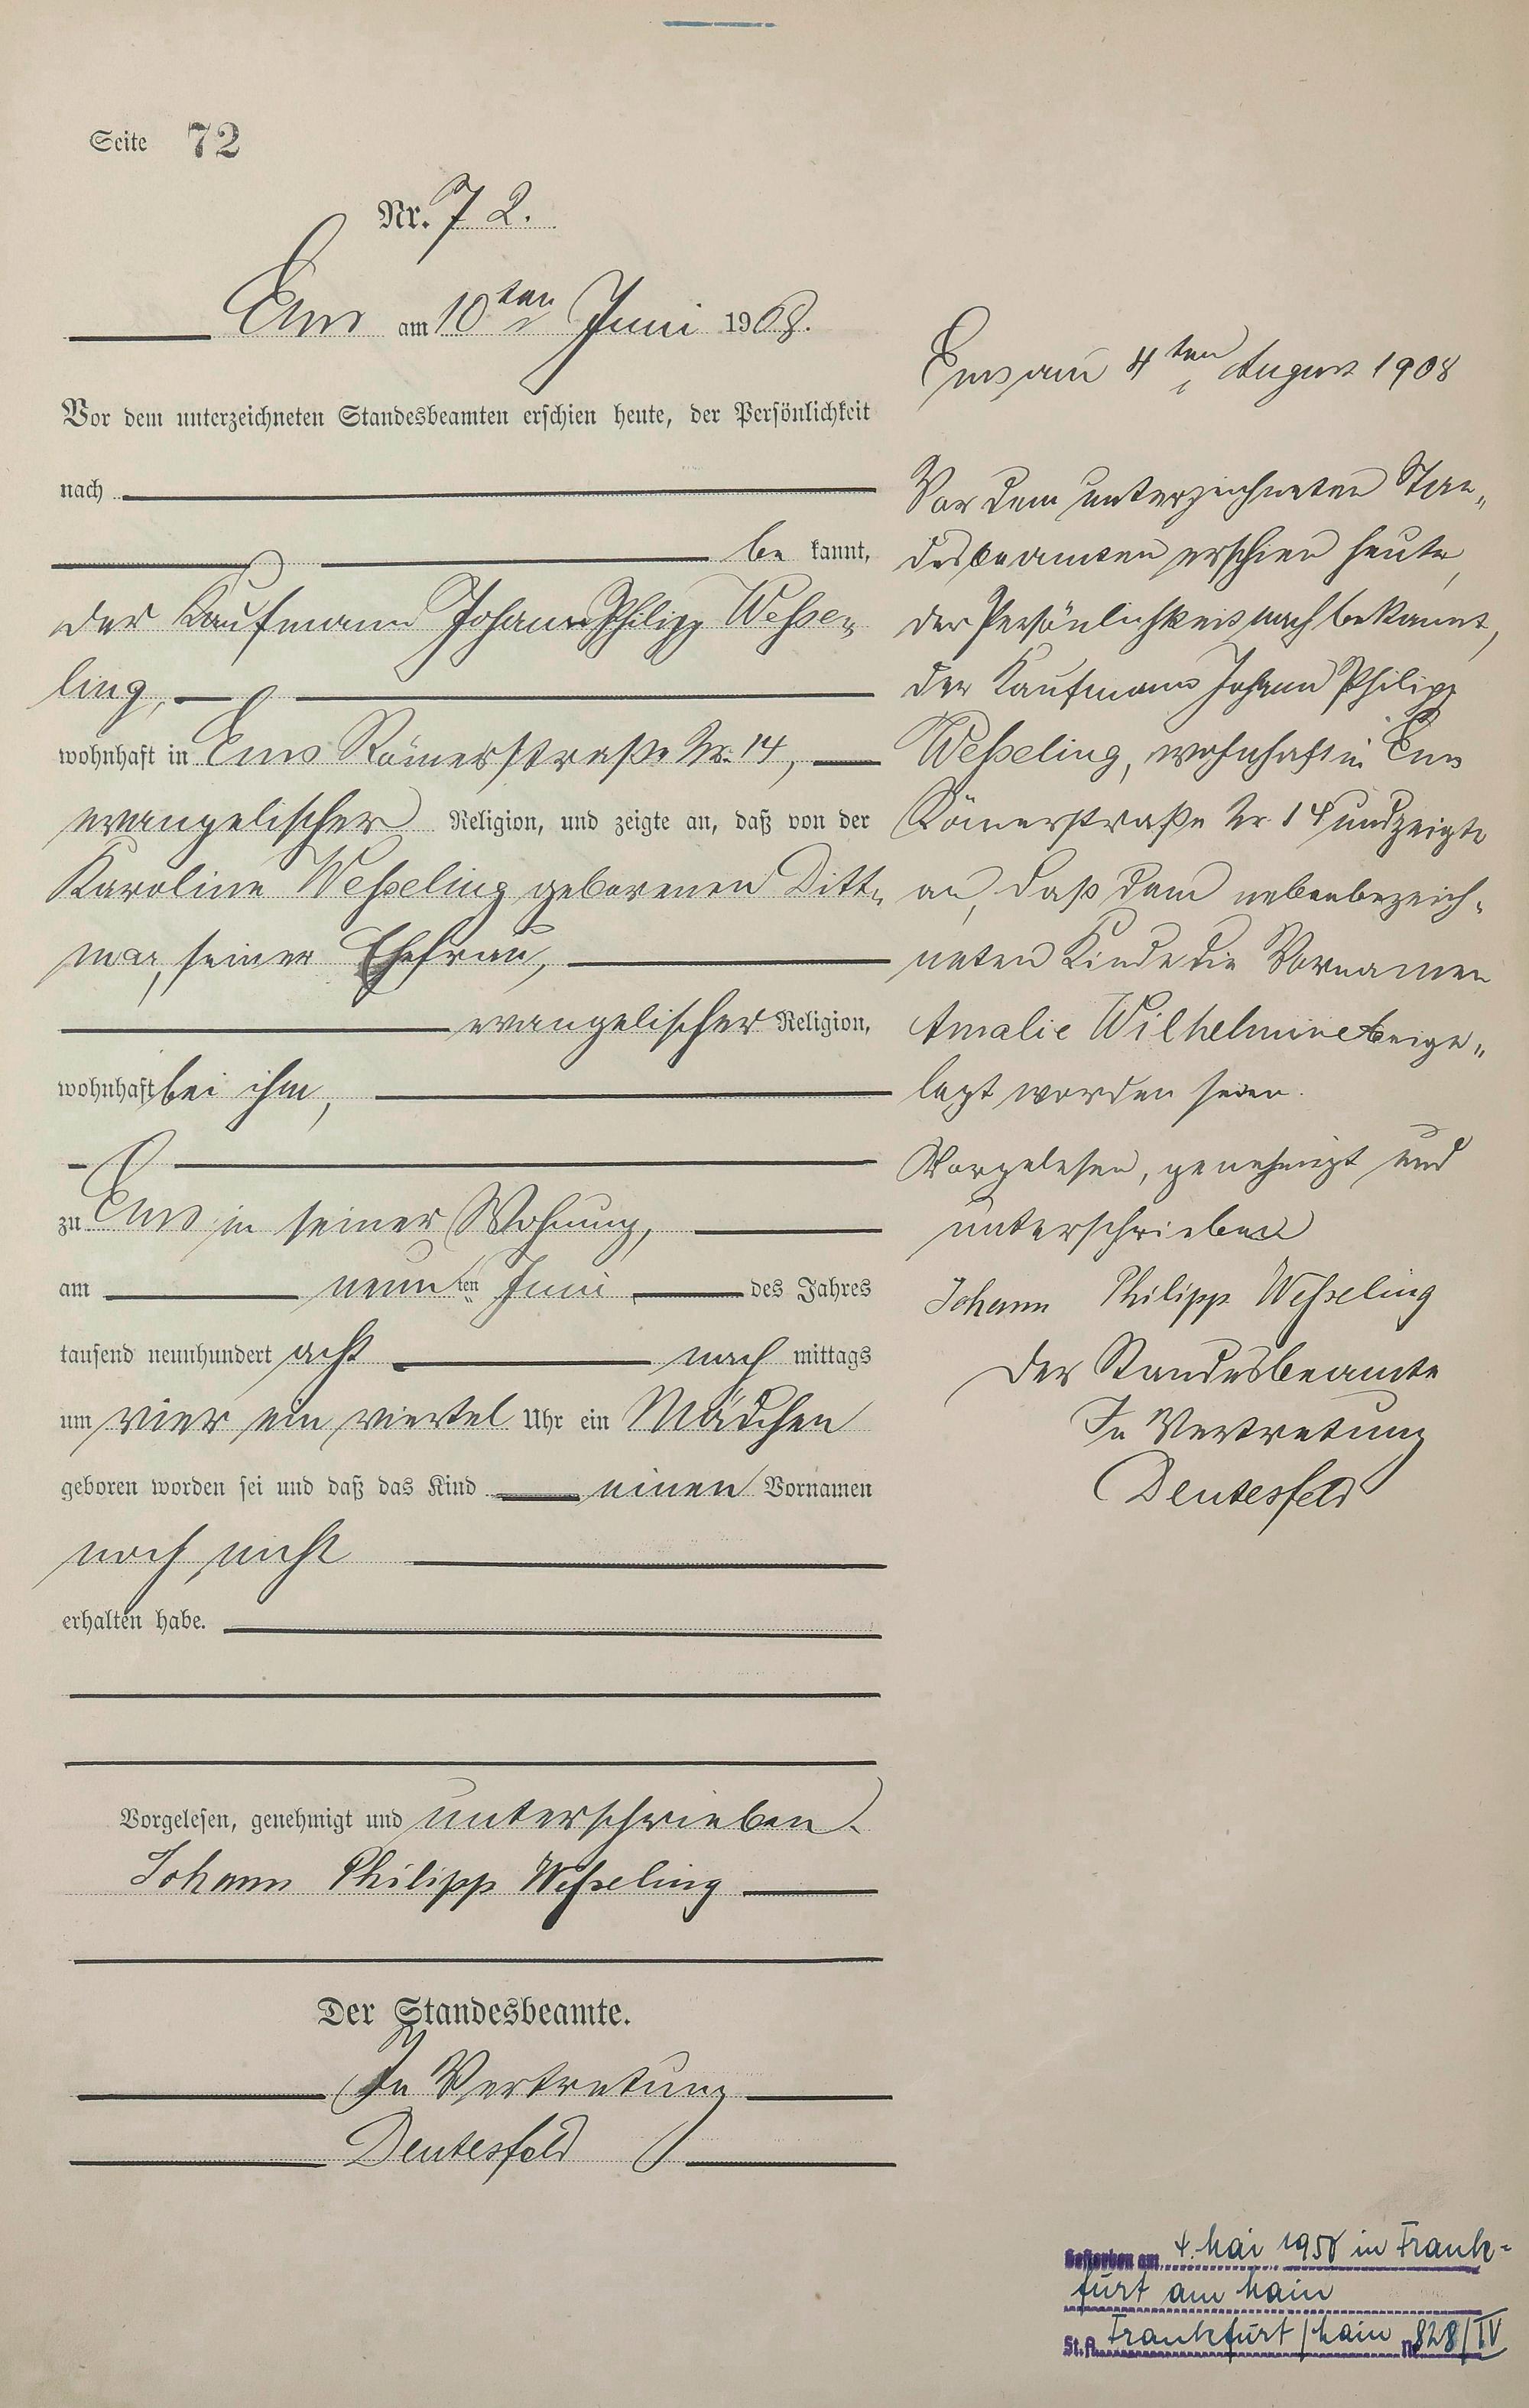 Seite 72
Nr. 72.
Ems am 10ten Juni 1908.
Vor dem unterzeichneten Standesbeamten erschien heute, der Persönlichkeit
nach
be kannt,
der Kaufmann Johann Philipp Wesse„
ling,
wohnhaft in Ems Römerstraße Nr. 14,
evangelischer Religion, und zeigte an, daß von der
Karoline Wesseling geborenen Ditt„
mar, seiner Ehefrau,
evangelischer Religion,
wohnhaft bei ihm,
zu Ems in seiner Wohnung,
am neunten Juni des Jahres
tausend neunhundert acht nach mittags
um vier ein viertel Uhr ein Mädchen
geboren worden sei und daß das Kind einen Vornamen
noch nicht
erhalten habe.
Vorgelesen, genehmigt und unterschrieben.
Johann Philipp Wesseling
Der Standesbeamte.
In Vertretung
Deutesfeld
Ems am 4ten August 1908
Vor dem unterzeichneten Stan„
desbeamten erschien heute,
der Persönlichkeit nach bekannt,
der Kaufmann Johann Philipp
Wesseling, wohnhaft in Ems
Römerstraße Nr. 14 und zeigte
an, daß dem nebenbezeich„
neten Kinde die Vornamen
Amalie Wilhelmine beige„
legt worden seien.
Vorgelesen, genehmigt und
unterschrieben
Johann Philipp Wesseling
Der Standesbeamte
In Vertretung
Deutesfeld
Gestorben am 4. Mai 1958 in Frank-
furt am Main
St.A. Frankfurt/Main Nr. 828/IV